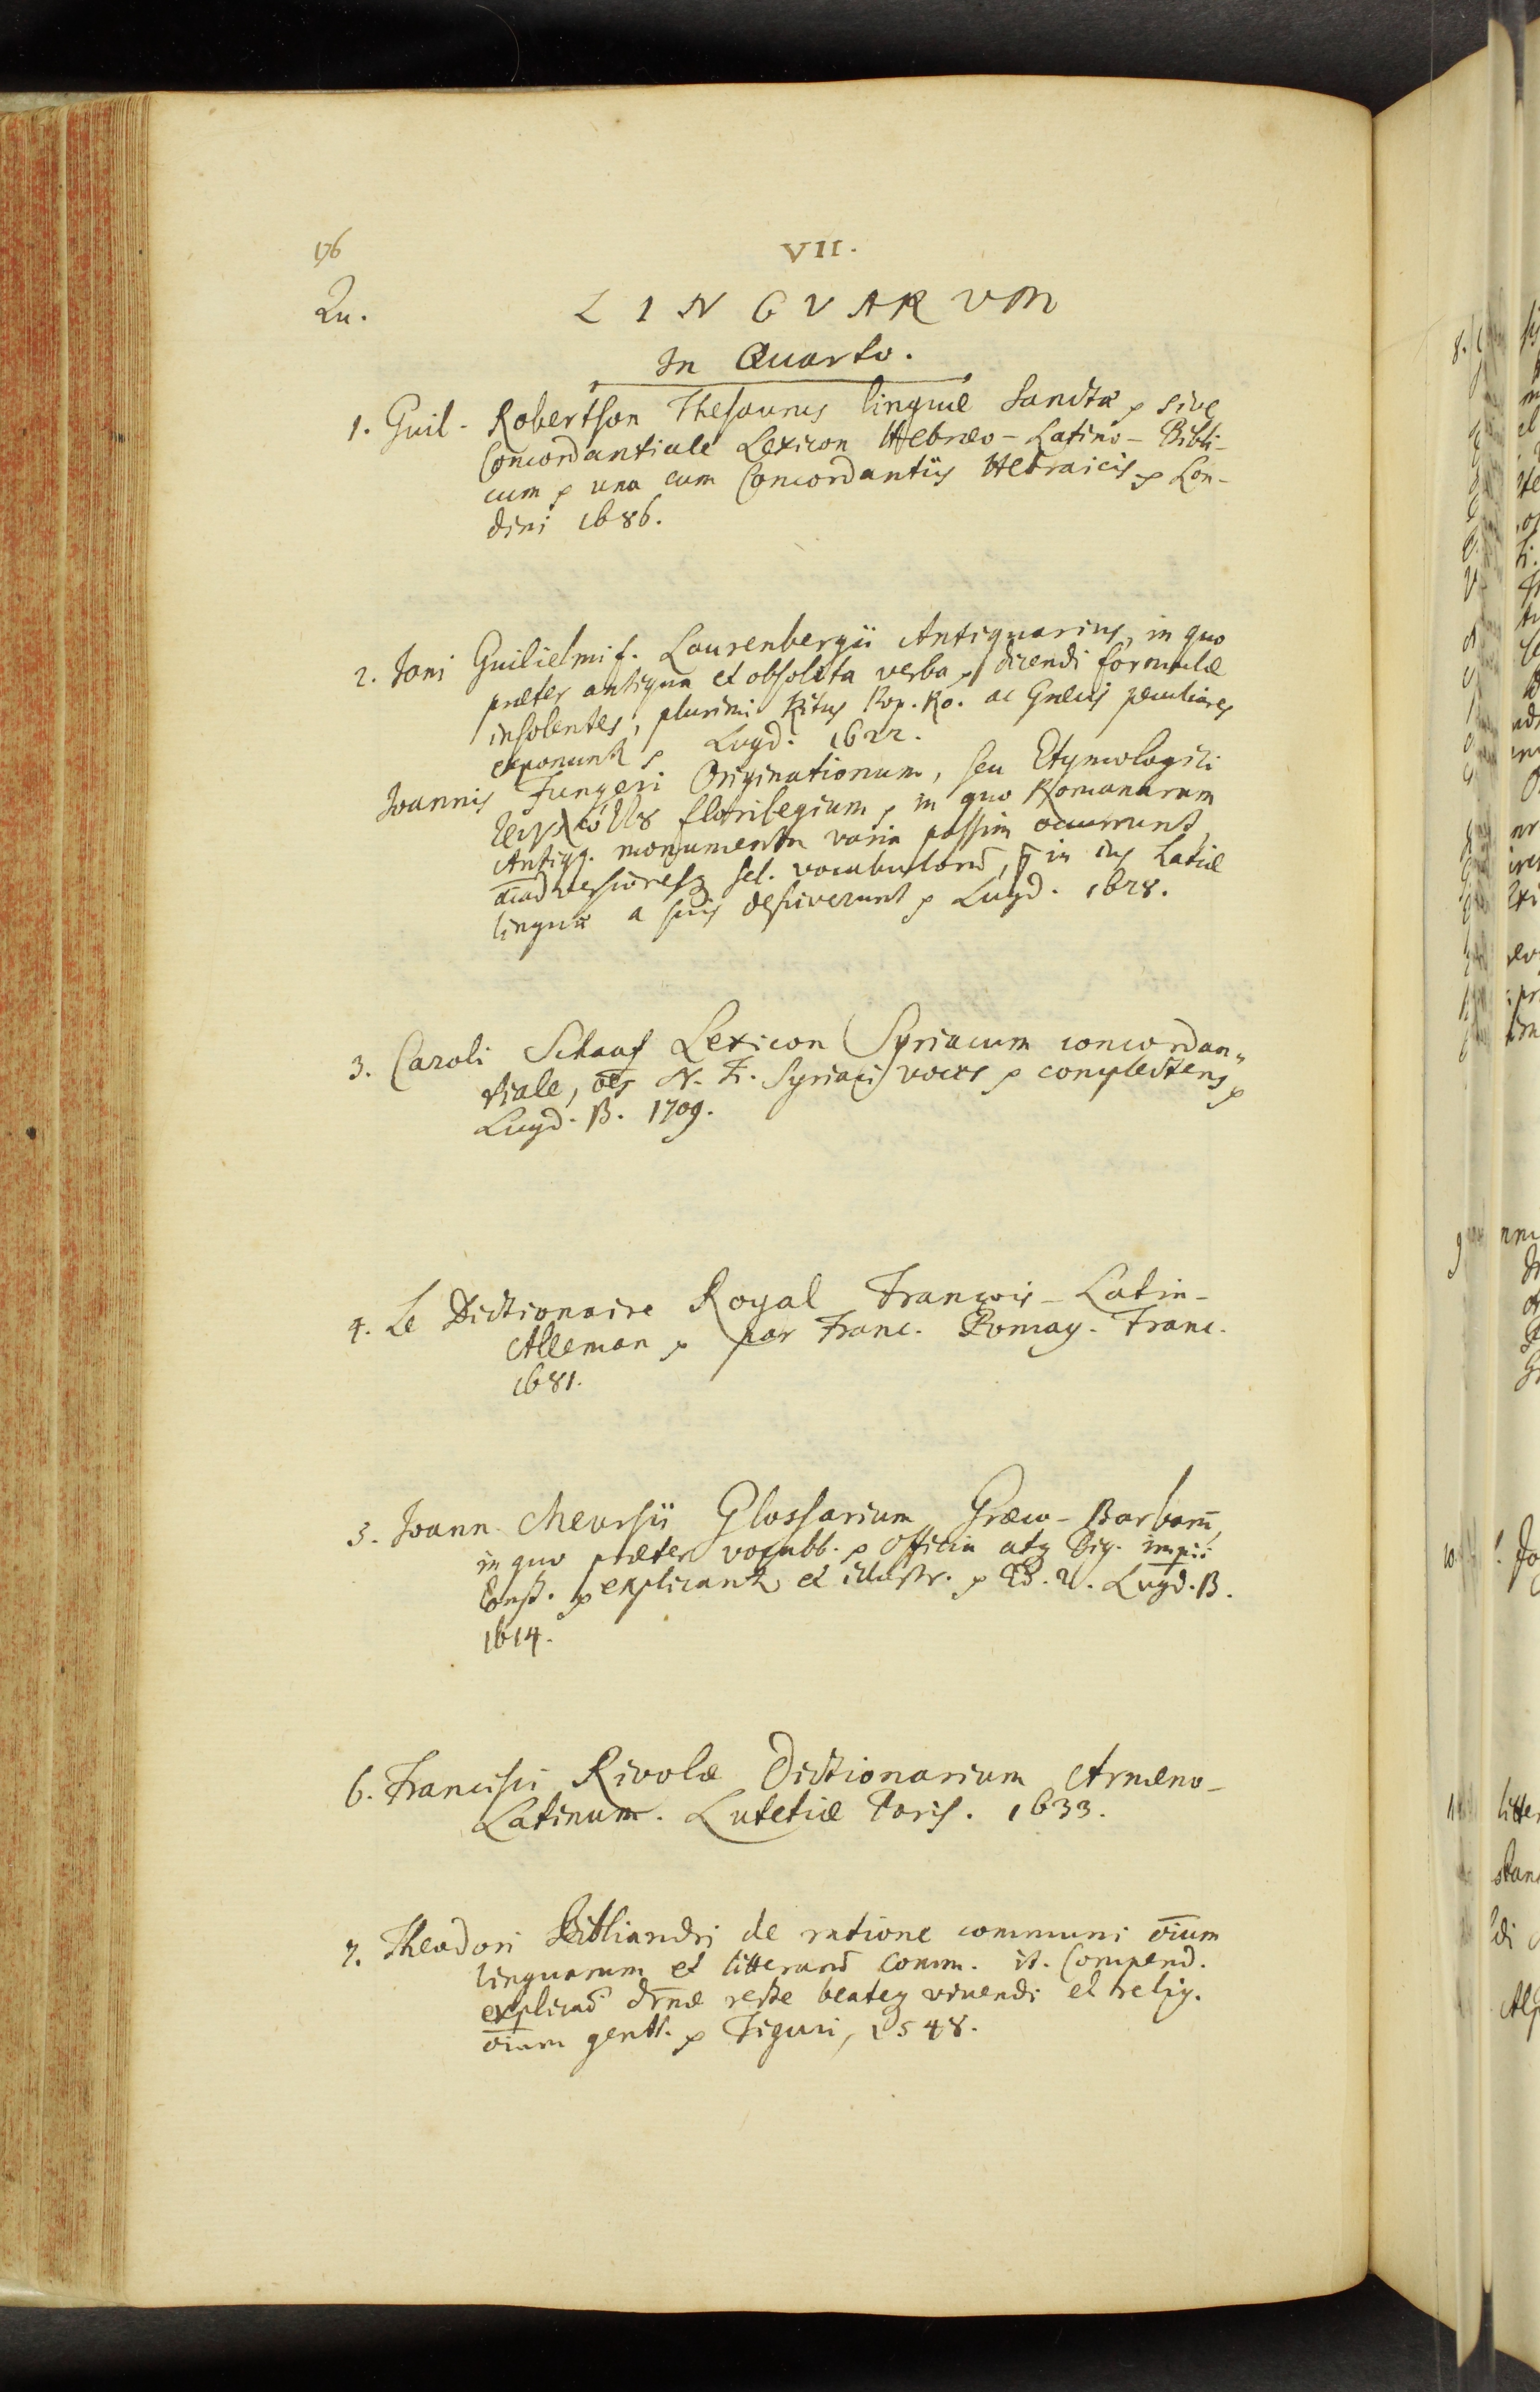 176
VII.
Qu.
LINGVARVM
In Quarto.
1. Guil. Robertson Thesaurus linguæ Sanctæ ꝛ sive
Concordantiale Lexicon Hebræo-Latino-Bibli-
cum ꝛ una cum Concordantiis Hebraicis ꝛ Lon-
dini 1686.
2. Jani Guilielmi f. Laurenbergii Antiquarius, in quo
præter antiqua et obsoleta verba ꝛ dicendi formulæ
insolentes, plurimi Ritus Pop. Ro. ac Græcis peculiares
exponunt ꝛ Lugd. 1622.
Joannis Fungeri Originationum, seu Etymologici
florilegium ꝛ in quo Romanarum
Antiqq. monumenta varia passim occurrunt,
sel. in ius Latiæ
linguæ a suis desciverunt ꝛ Lugd. 1628.
3. Caroli Schaaf Lexicon Syriacum concordan„
tiale, oēs N. T. Syriaci voces ꝛ complectens ꝛ
Lugd. B. 1709.
4. Le Dictionaire Royal François-Latin-
Alleman ꝛ par Franc. Pomay. Franc.
1681.
5. Joann. Meursii Glossarium Græco-Barbarū,
in quo præter vocabb. ꝛ officia atq Dig. impii
Const. ꝛ explicant et illustr. ꝛ Ed. 2. Lugd. B.
1614.
6. Francisci Rivolæ Dictionarium Armeno-
Latinum. Lutetiæ Paris. 1633.
7. Theodori Bibliandri de ratione communi oīum
linguarum et litterarū Comm. it. Compend.
explicaō drnæ recte beateq vivendi et relig.
oīum gentt. ꝛ Tiguri, 1548.